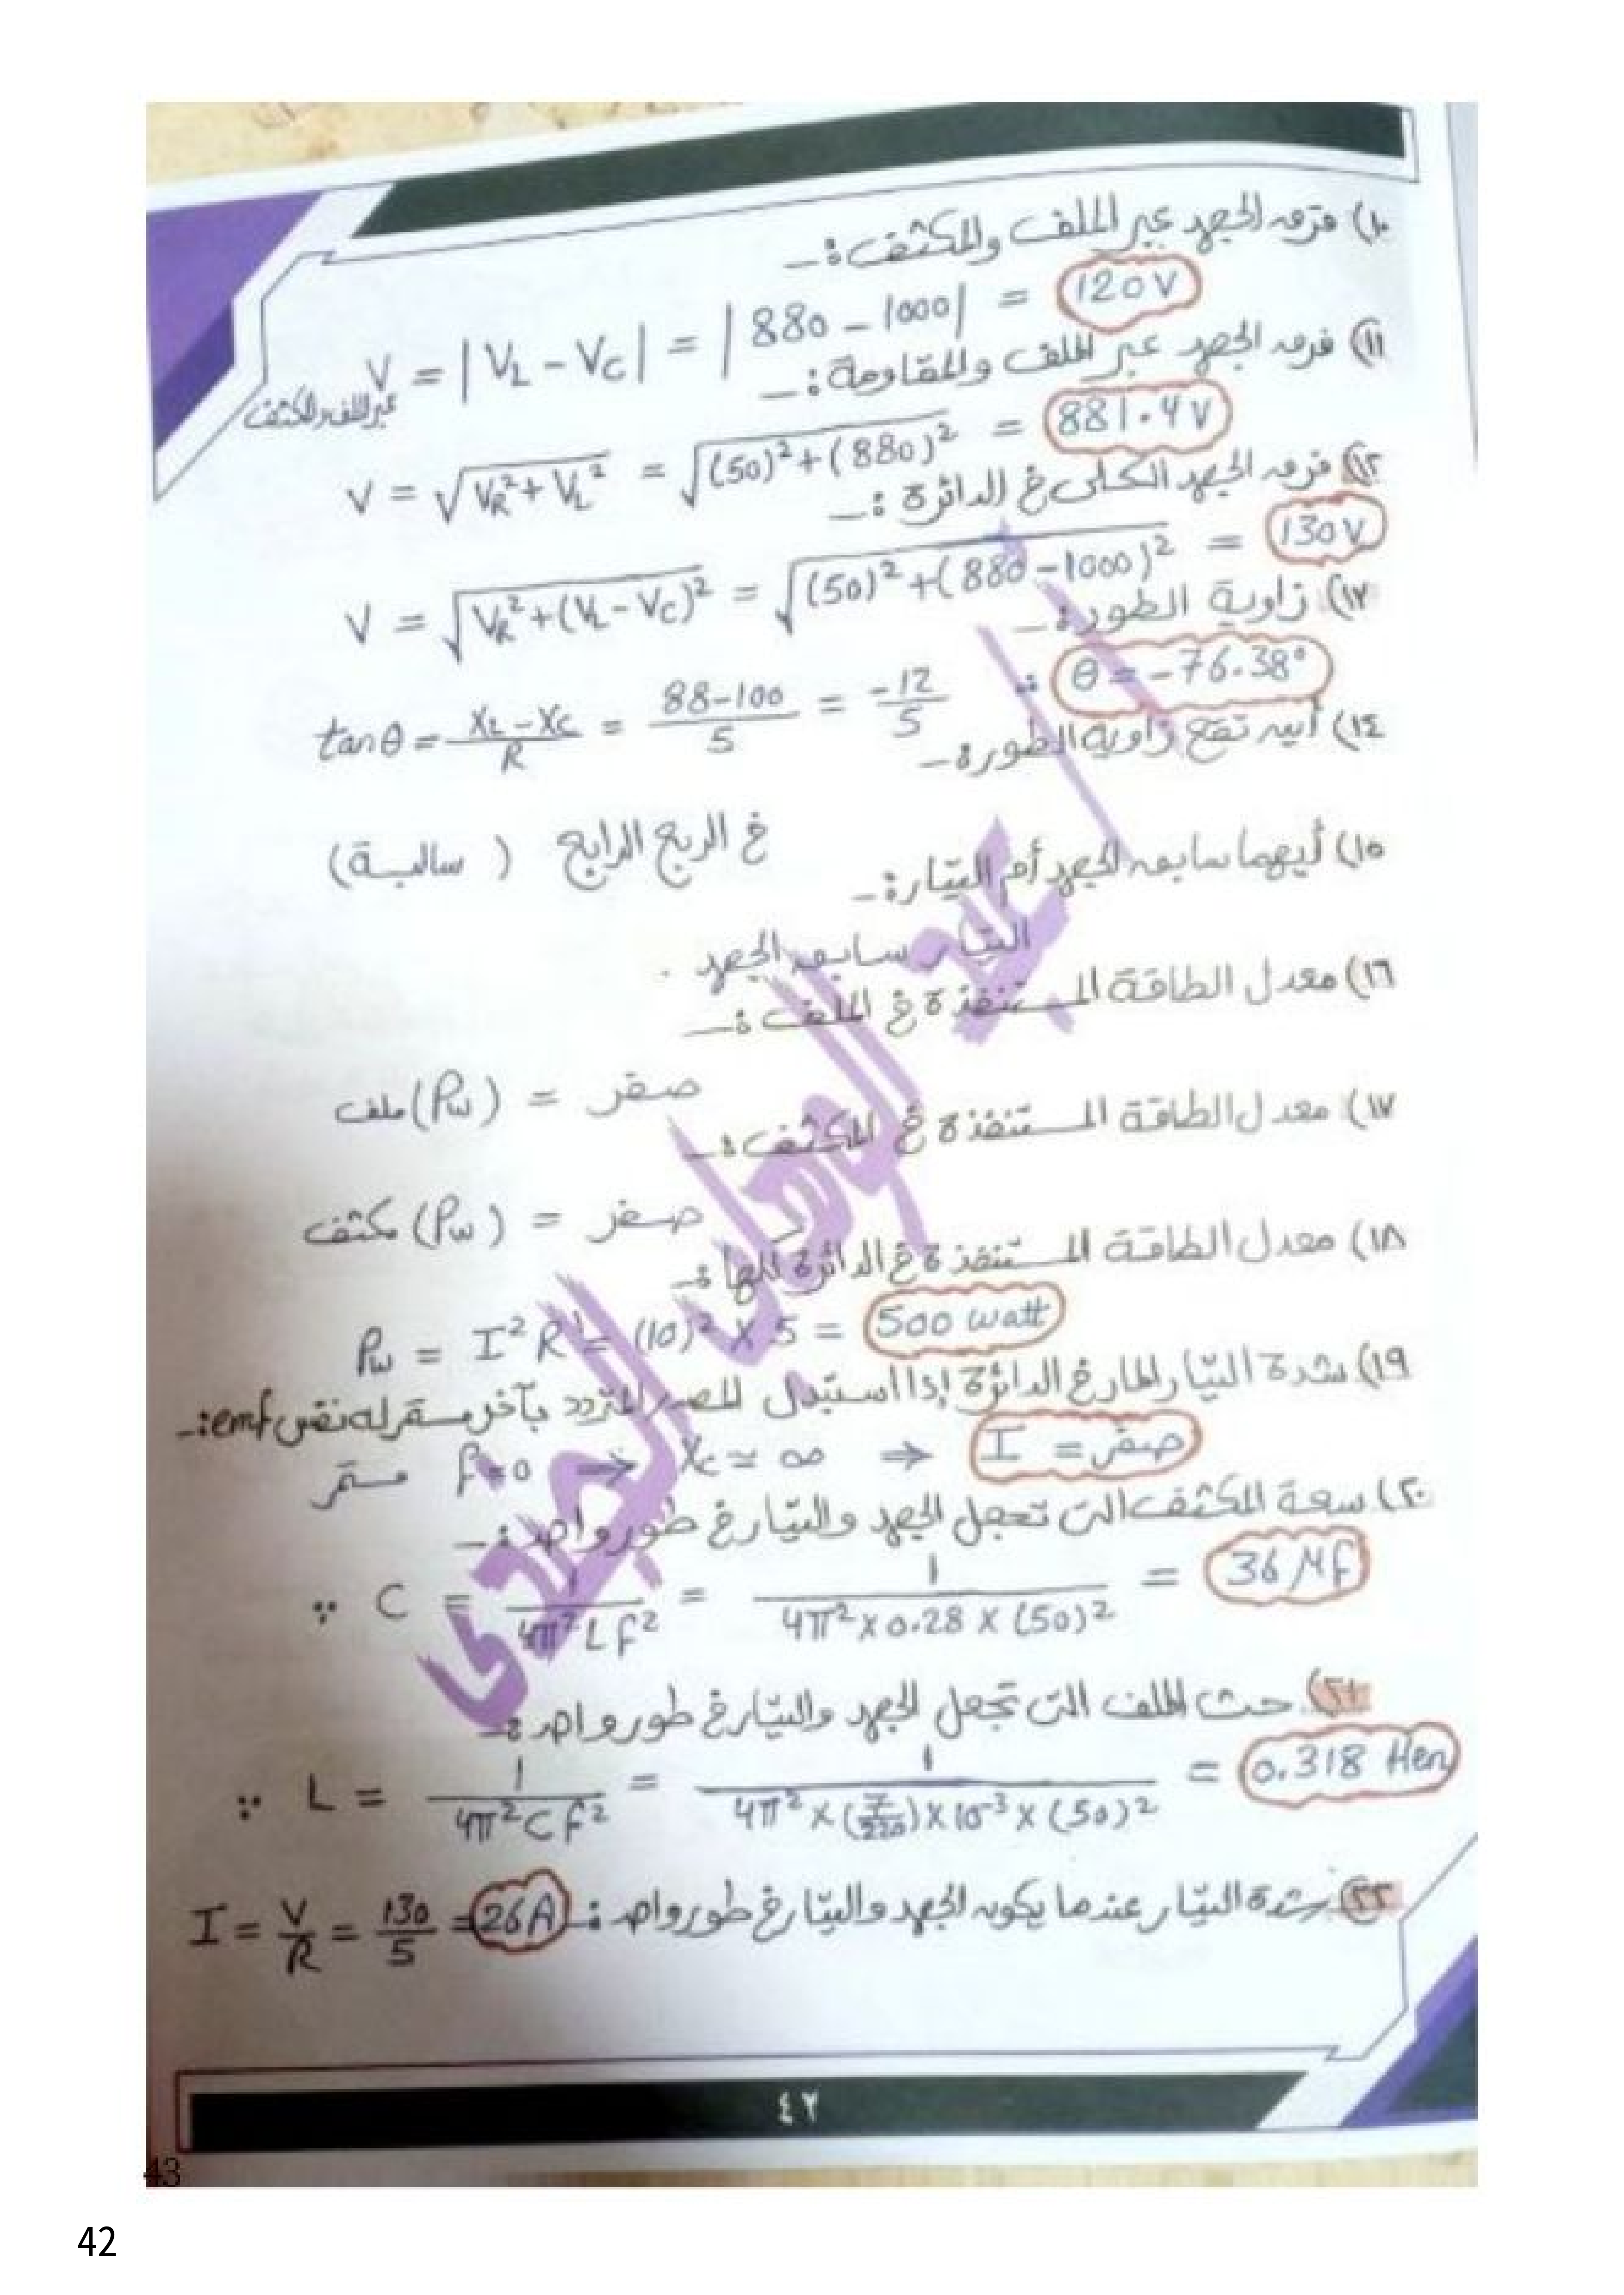 ١٠) فرق الجهد عبر الملف والمكثف :-
V عبر الملف والمكثف = |VL - VC| = |880 - 1000| = 120V
١١) فرق الجهد عبر الملف والمقاومة :-
V = √VR² + VL² = √(50)² + (880)² = 881.4V
١٢) فرق الجهد الكلى فى الدائرة :-
V = √VR² + (VL - VC)² = √(50)² + (880 - 1000)² = 130V
١٣) زاوية الطور :-
tanθ = XL - XC / R = 88-100 / 5 = -12 / 5 ∴ θ = -76.38°
١٤) أين تقع زاوية الطور :-
فى الربع الرابع ( سالبة )
١٥) أيهما سابق الجهد أم التيار :-
التيار سابق الجهد .
١٦) معدل الطاقة المستنفذة فى الملف :-
(Pw) ملف = صفر
١٧) معدل الطاقة المستنفذة فى المكثف :-
(Pw) مكثف = صفر
١٨) معدل الطاقة المستنفذة فى الدائرة كلها :-
Pw = I² R = (10)² X 5 = 500 watt
١٩) شدة التيار المار فى الدائرة إذا استبدل المصدر المتردد بآخر مستمر له نفس emf :-
مستمر f=0 ⇒ Xc = ∞ ⇒ I = صفر
٢٠) سعة المكثف التى تجعل الجهد والتيار فى طور واحد :-
∵ C = 1 / 4π² L f² = 1 / 4π² x 0.28 x (50)² = 36 μf
٢١) حث الملف التى تجعل الجهد والتيار فى طور واحد :-
∵ L = 1 / 4π² C f² = 1 / 4π² x (7/220) x 10⁻³ x (50)² = 0.318 Hen
٢٢) شدة التيار عندما يكون الجهد والتيار فى طور واحد :- I = V / R = 130 / 5 = 26A
عبد الوهاب الجندى
٤٢
43
42